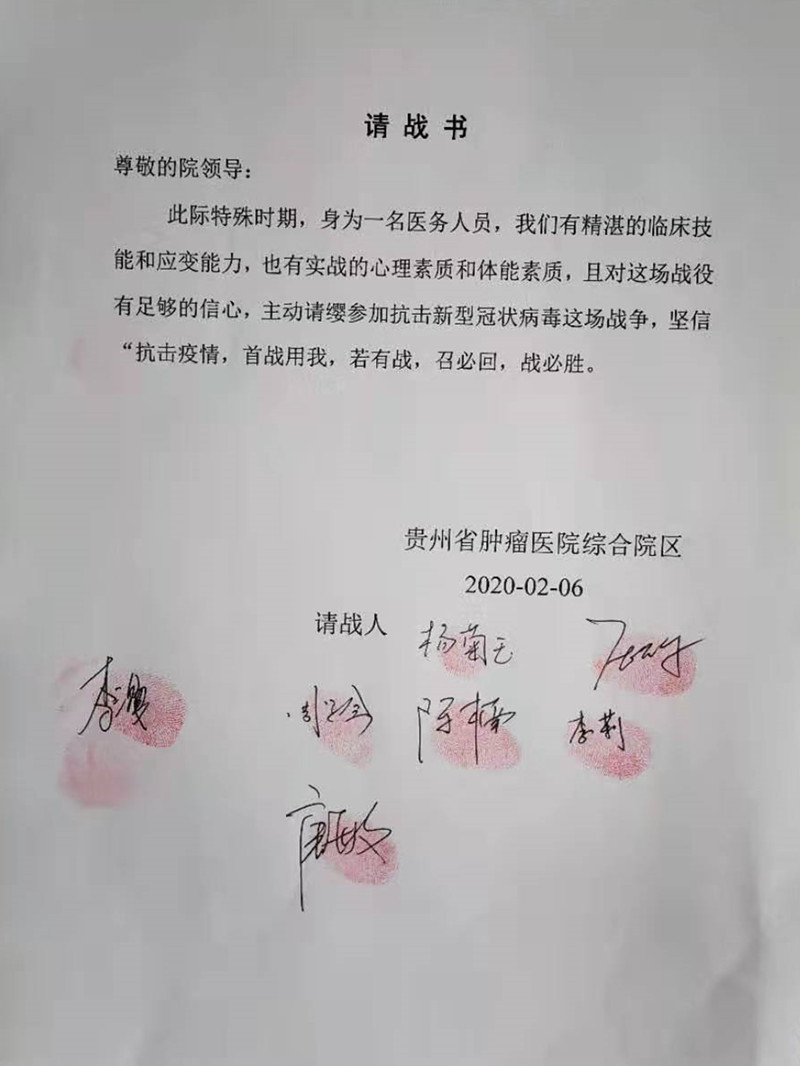 请战书
尊敬的院领导：
此际特殊时期，身为一名医务人员，我们有精湛的临床技
能和应变能力，也有实战的心理素质和体能素质，且对这场战役
有足够的信心，主动请缨参加抗击新型冠状病毒这场战争，坚信
“抗击疫情，首战用我，若有战，召必回，战必胜。
贵州省肿瘤医院综合院区
2020-02-06
请战人
陈楠 李莉